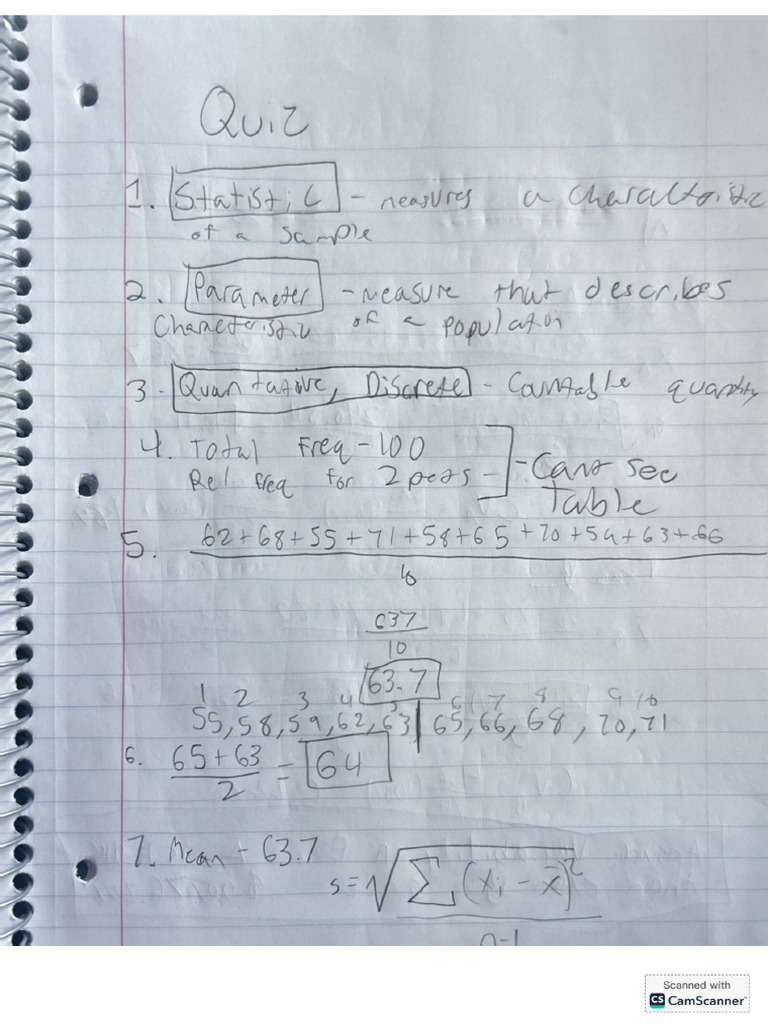 Quiz
1. Statistic - measures a charactoristic
of a sample
2. Parameter - measure that describes
Characteristic of a population
3. Quantative, Discrete - Countable quantity
4. Total Freq - 100
Rel freq for 2 pets - - Cant see
Table
5. 62+68+55+71+58+65+70+59+63+66
10
637
10
63.7
1 2 3 4 5 6 7 8 9 10
55, 58, 59, 62, 63 | 65, 66, 68, 70, 71
6. 65+63 = 64
2
7. Mean - 63.7
s = √ Σ (xi - x̄)²
n-1
Scanned with
CS CamScanner